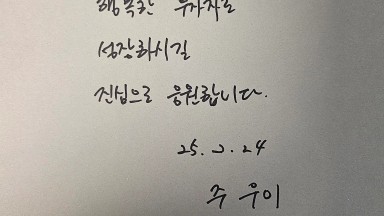 행복한 투자자로
성장하시길
진심으로 응원합니다.
25. 2. 24
주 우이